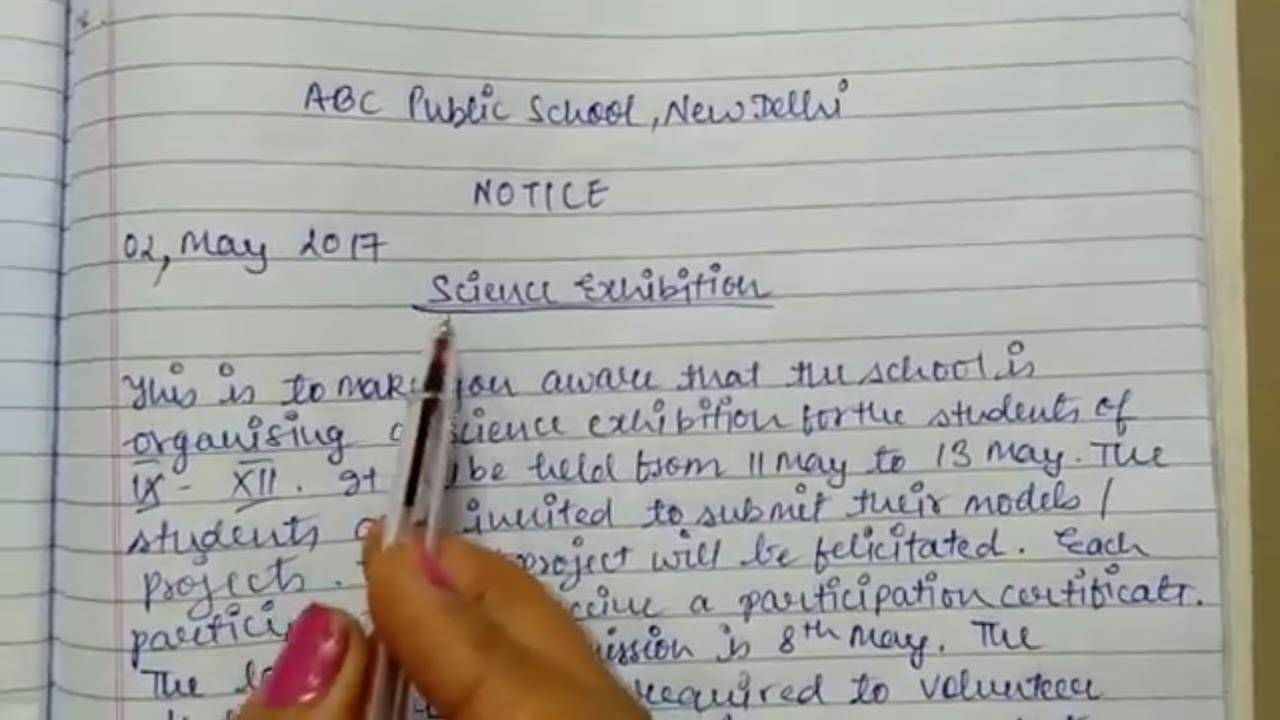 ABC Public School, New Delhi
NOTICE
02, May 2017
Science Exhibition
This is to make you aware that the school is
organising a science exhibition for the students of
IX - XII. It be held from 11 May to 13 May. The
students invited to submit their models /
projects. project will be felicitated. Each
a participation certificate.
is 8th May. The
The required to volunteer